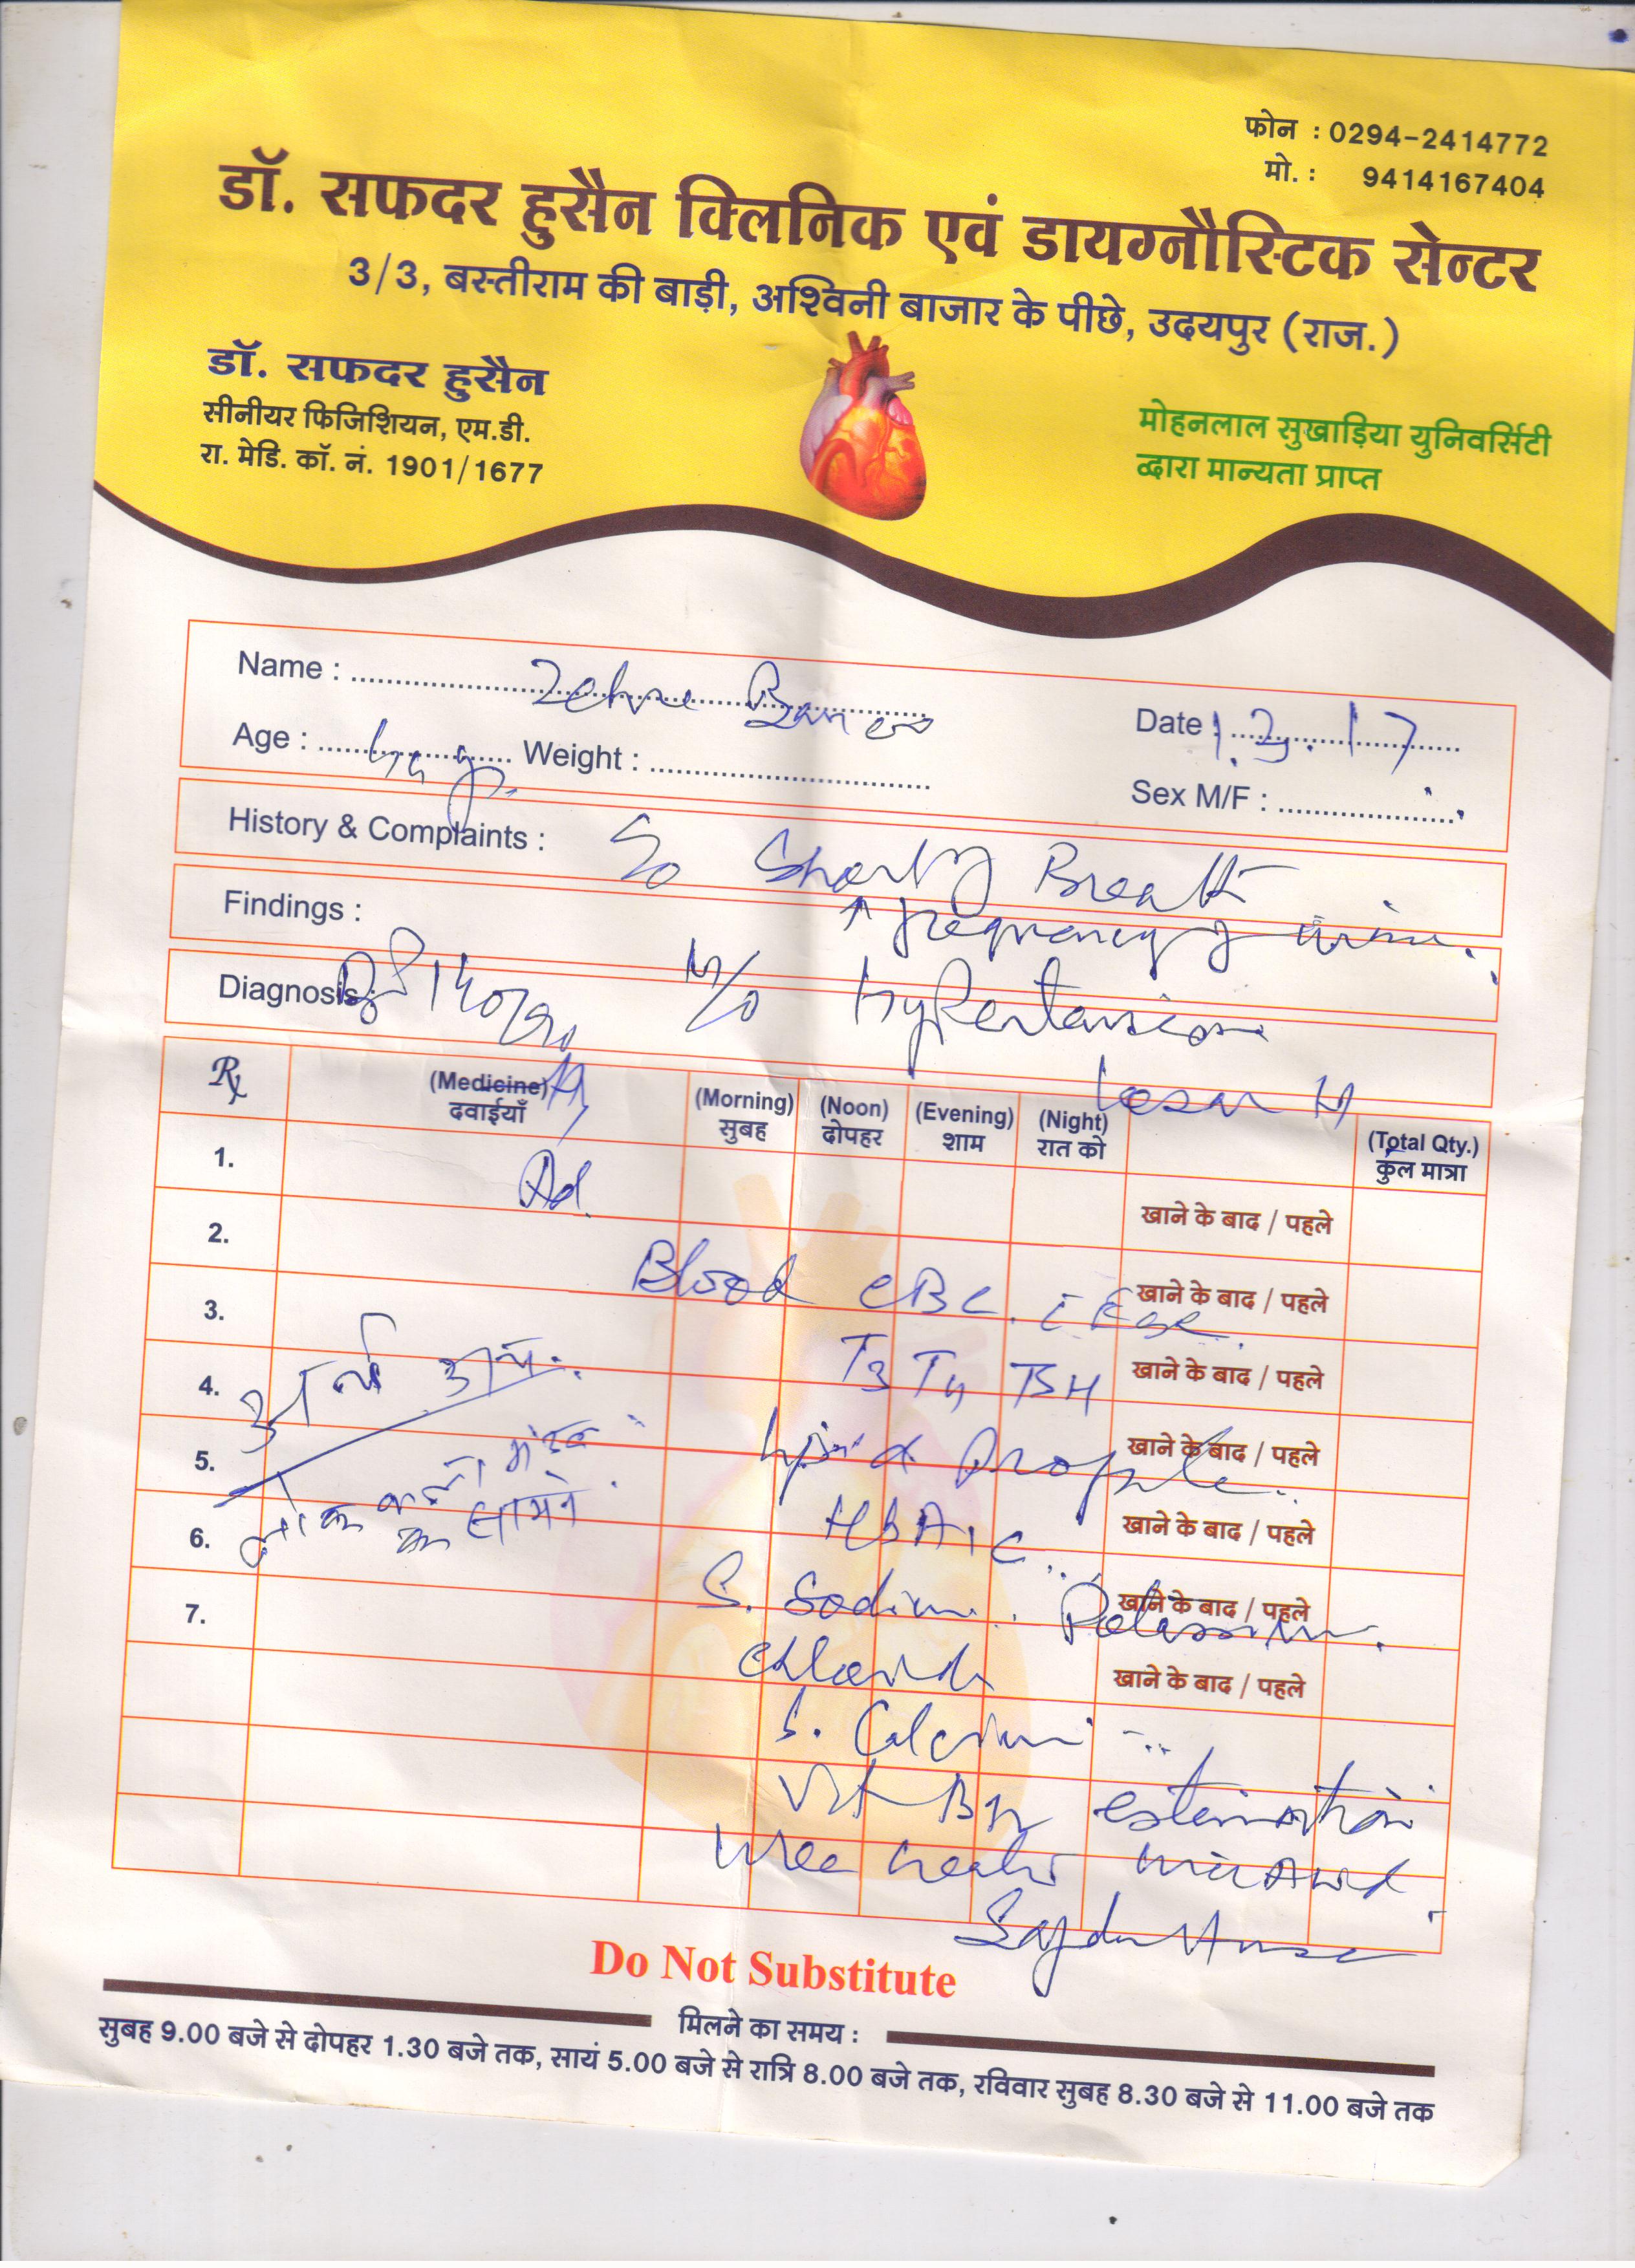 फोन : 0294-2414772
मो. : 9414167404
डॉ. सफदर हुसैन क्लिनिक एवं डायग्नौस्टिक सेन्टर
3/3, बस्तीराम की बाड़ी, अश्विनी बाजार के पीछे, उदयपुर (राज.)
डॉ. सफदर हुसैन
सीनीयर फिजिशियन, एम.डी.
रा. मेडि. कॉ. नं. 1901/1677
मोहनलाल सुखाड़िया युनिवर्सिटी
द्वारा मान्यता प्राप्त
Name :
Date :
Age : Weight :
Sex M/F :
History & Complaints : Short of Breath
↑ frequency of urine
Findings :
Diagnosis : H/O hypertension
Losar H
Rx (Medicine) दवाईयाँ (Morning) सुबह (Noon) दोपहर (Evening) शाम (Night) रात को (Total Qty.) कुल मात्रा
1. Ad. खाने के बाद / पहले
2. खाने के बाद / पहले
Blood CBC
3. खाने के बाद / पहले
T3 T4 TSH
4. खाने के बाद / पहले
Lipid Profile
5. खाने के बाद / पहले
के सामने
HbA1C
6. खाने के बाद / पहले
S. Sodium Potassium
7. खाने के बाद / पहले
Chloride
S. Calcium
Vit B12 estimation
Do Not Substitute
मिलने का समय :
सुबह 9.00 बजे से दोपहर 1.30 बजे तक, सायं 5.00 बजे से रात्रि 8.00 बजे तक, रविवार सुबह 8.30 बजे से 11.00 बजे तक